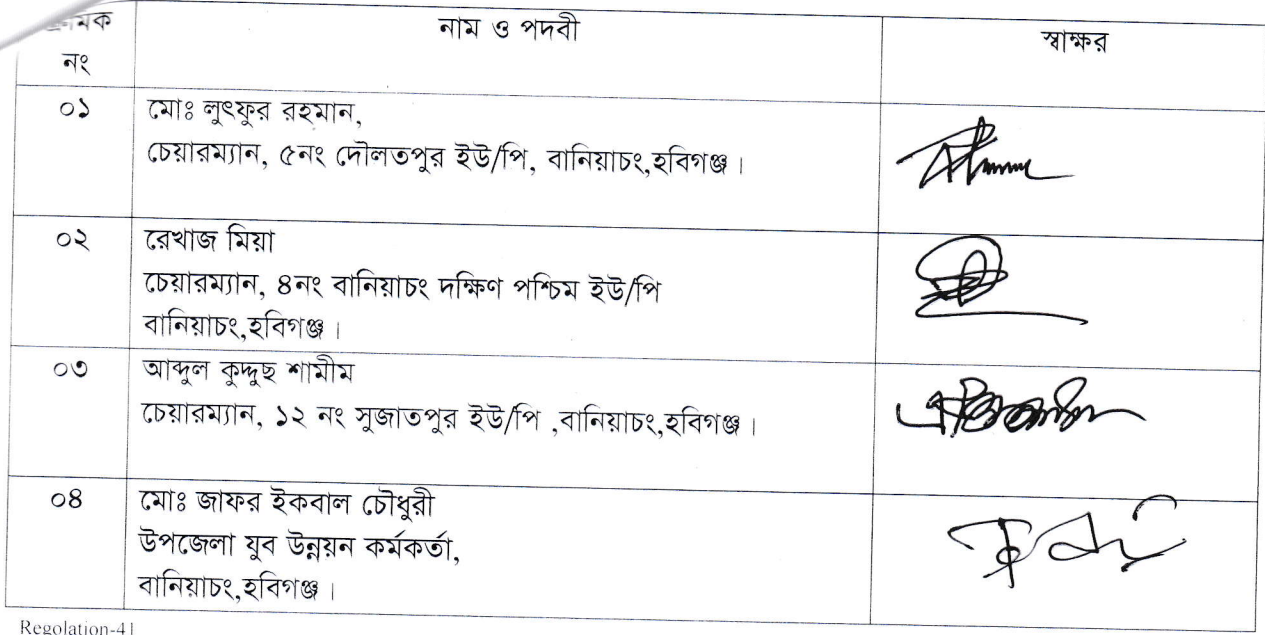 ক্রমিক নাম ও পদবী স্বাক্ষর
নং
০১ মোঃ লুৎফুর রহমান,
চেয়ারম্যান, ৫নং দৌলতপুর ইউ/পি, বানিয়াচং,হবিগঞ্জ।
০২ রেখাজ মিয়া
চেয়ারম্যান, ৪নং বানিয়াচং দক্ষিণ পশ্চিম ইউ/পি
বানিয়াচং,হবিগঞ্জ।
০৩ আব্দুল কুদ্দুছ শামীম
চেয়ারম্যান, ১২ নং সুজাতপুর ইউ/পি ,বানিয়াচং,হবিগঞ্জ।
০৪ মোঃ জাফর ইকবাল চৌধুরী
উপজেলা যুব উন্নয়ন কর্মকর্তা,
বানিয়াচং,হবিগঞ্জ।
Regolation-41